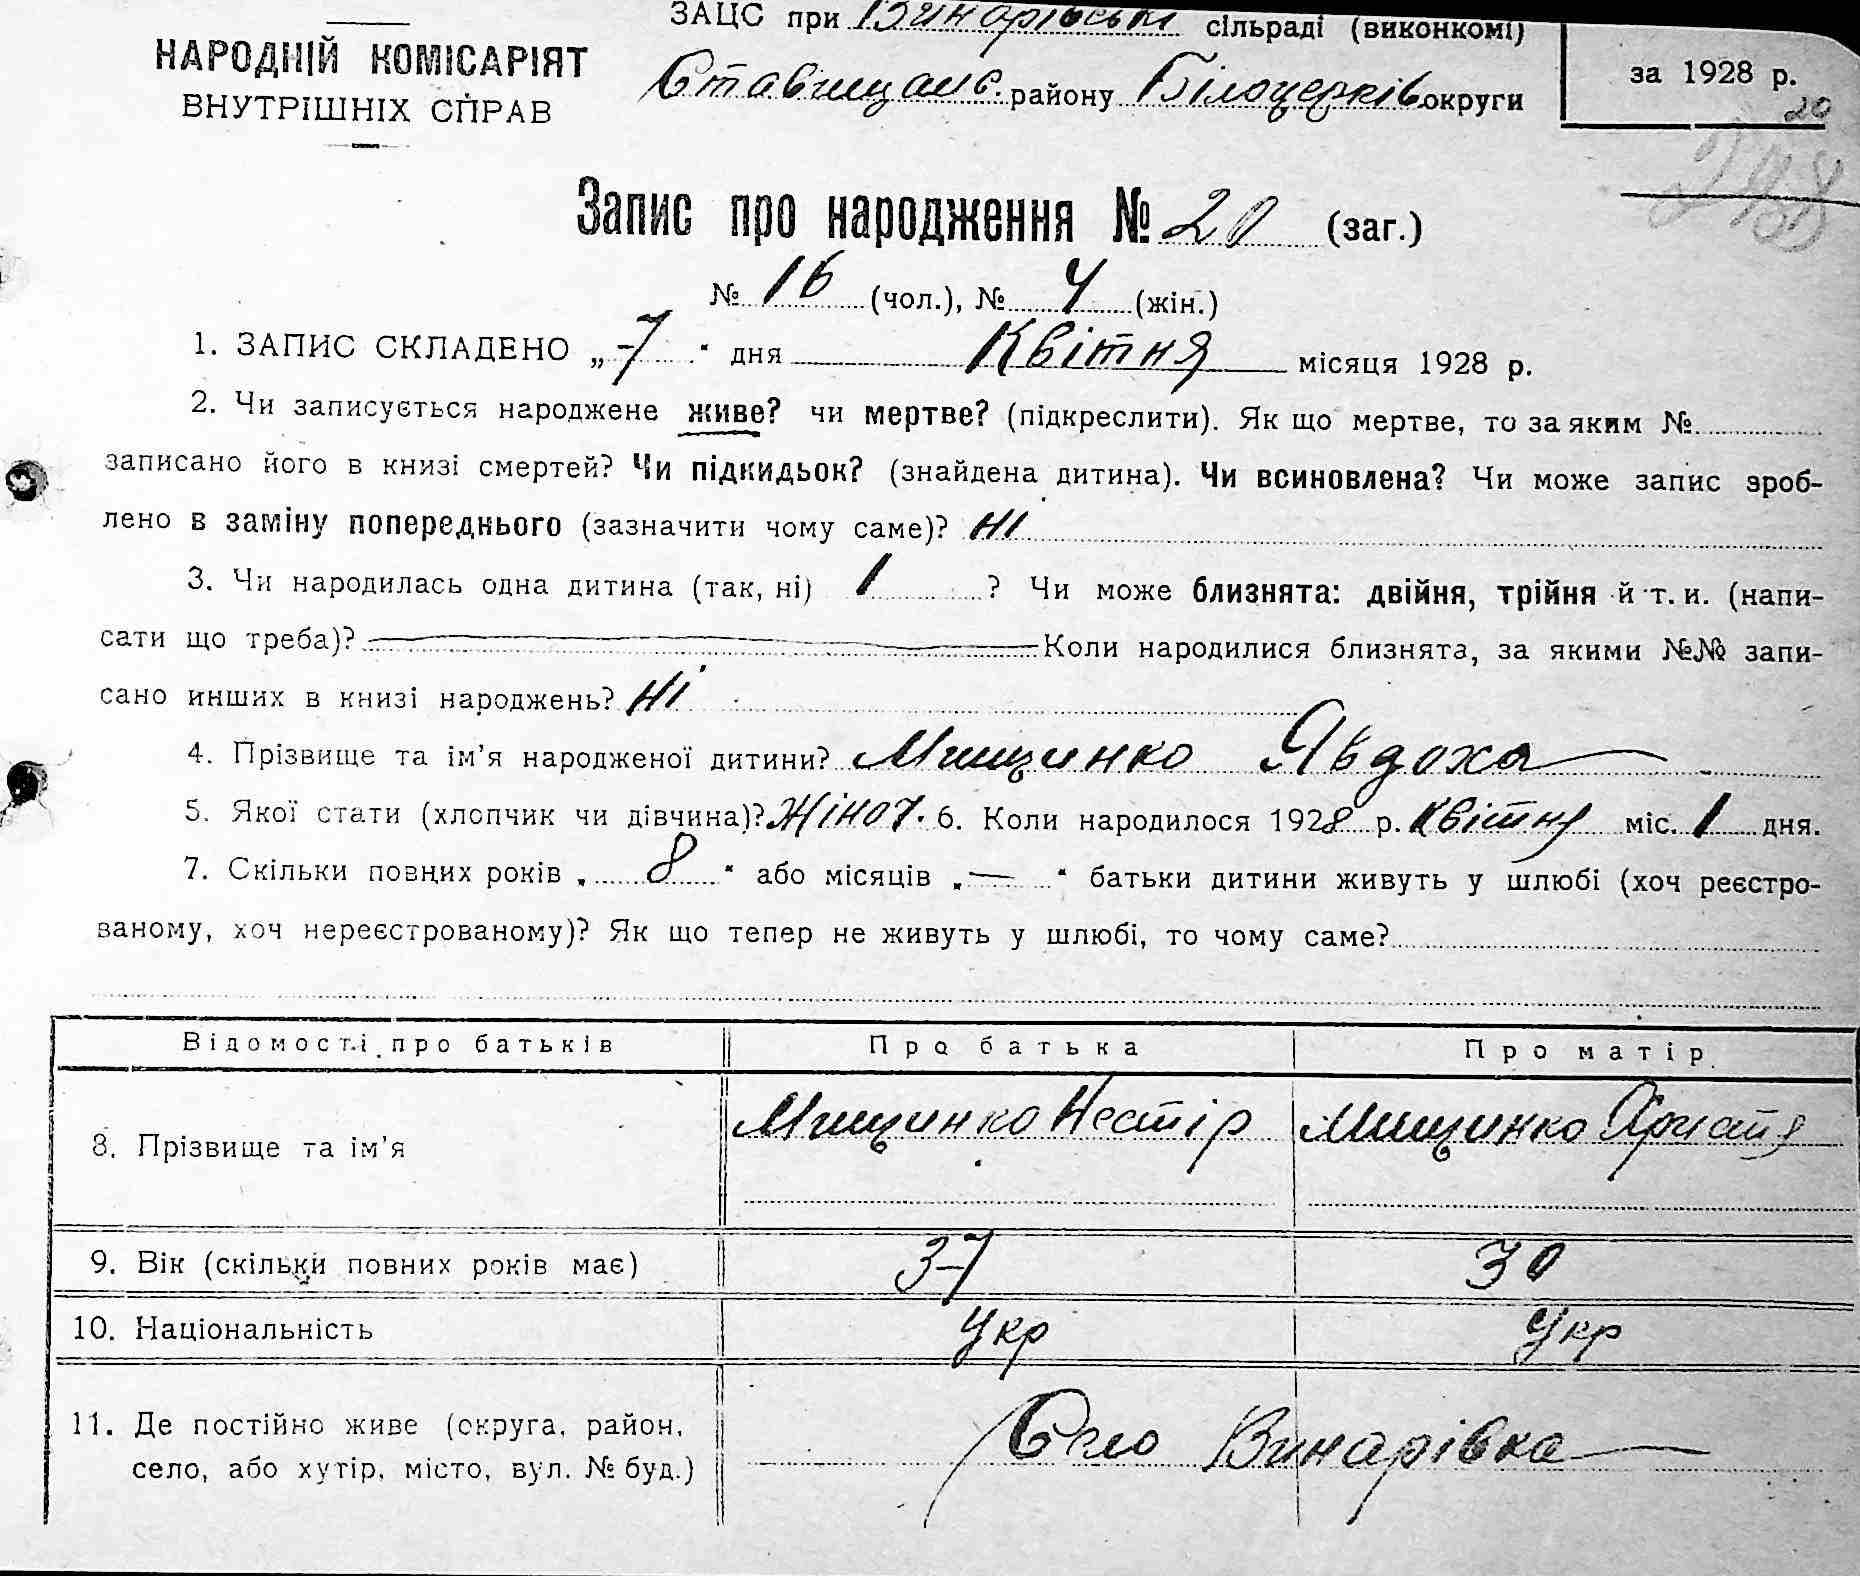 ЗАЦС при Винарівські сільраді (виконкомі)
НАРОДНІЙ КОМІСАРІЯТ
ВНУТРІШНІХ СПРАВ
Ставищанс. району Білоцерків округи
за 1928 р.
20
Запис про народження № 20 (заг.)
№ 16 (чол.), № 4 (жін.)
1. ЗАПИС СКЛАДЕНО „7“ дня Квітня місяця 1928 р.
2. Чи записується народжене живе? чи мертве? (підкреслити). Як що мертве, то за яким №
записано його в книзі смертей? Чи підкидьок? (знайдена дитина). Чи всиновлена? Чи може запис зроб-
лено в заміну попереднього (зазначити чому саме)? ні
3. Чи народилась одна дитина (так, ні) 1 ? Чи може близнята: двійня, трійня й т. и. (напи-
сати що треба)? — Коли народилися близнята, за якими №№ запи-
сано инших в книзі народжень? Ні
4. Прізвище та ім'я народженої дитини? Мищинко Явдоха
5. Якої стати (хлопчик чи дівчина)? Жіноч. 6. Коли народилося 1928 р. Квітня міс. 1 дня.
7. Скільки повних років „ 8 “ або місяців „ — “ батьки дитини живуть у шлюбі (хоч реєстро-
ваному, хоч нереєстрованому)? Як що тепер не живуть у шлюбі, то чому саме?
Відомості про батьків Про батька Про матір
8. Прізвище та ім'я Мищинко Нестір Мищинко
9. Вік (скільки повних років має) 37 30
10. Національність Укр Укр
11. Де постійно живе (округа, район,
село, або хутір, місто, вул. № буд.) Село Винарівка